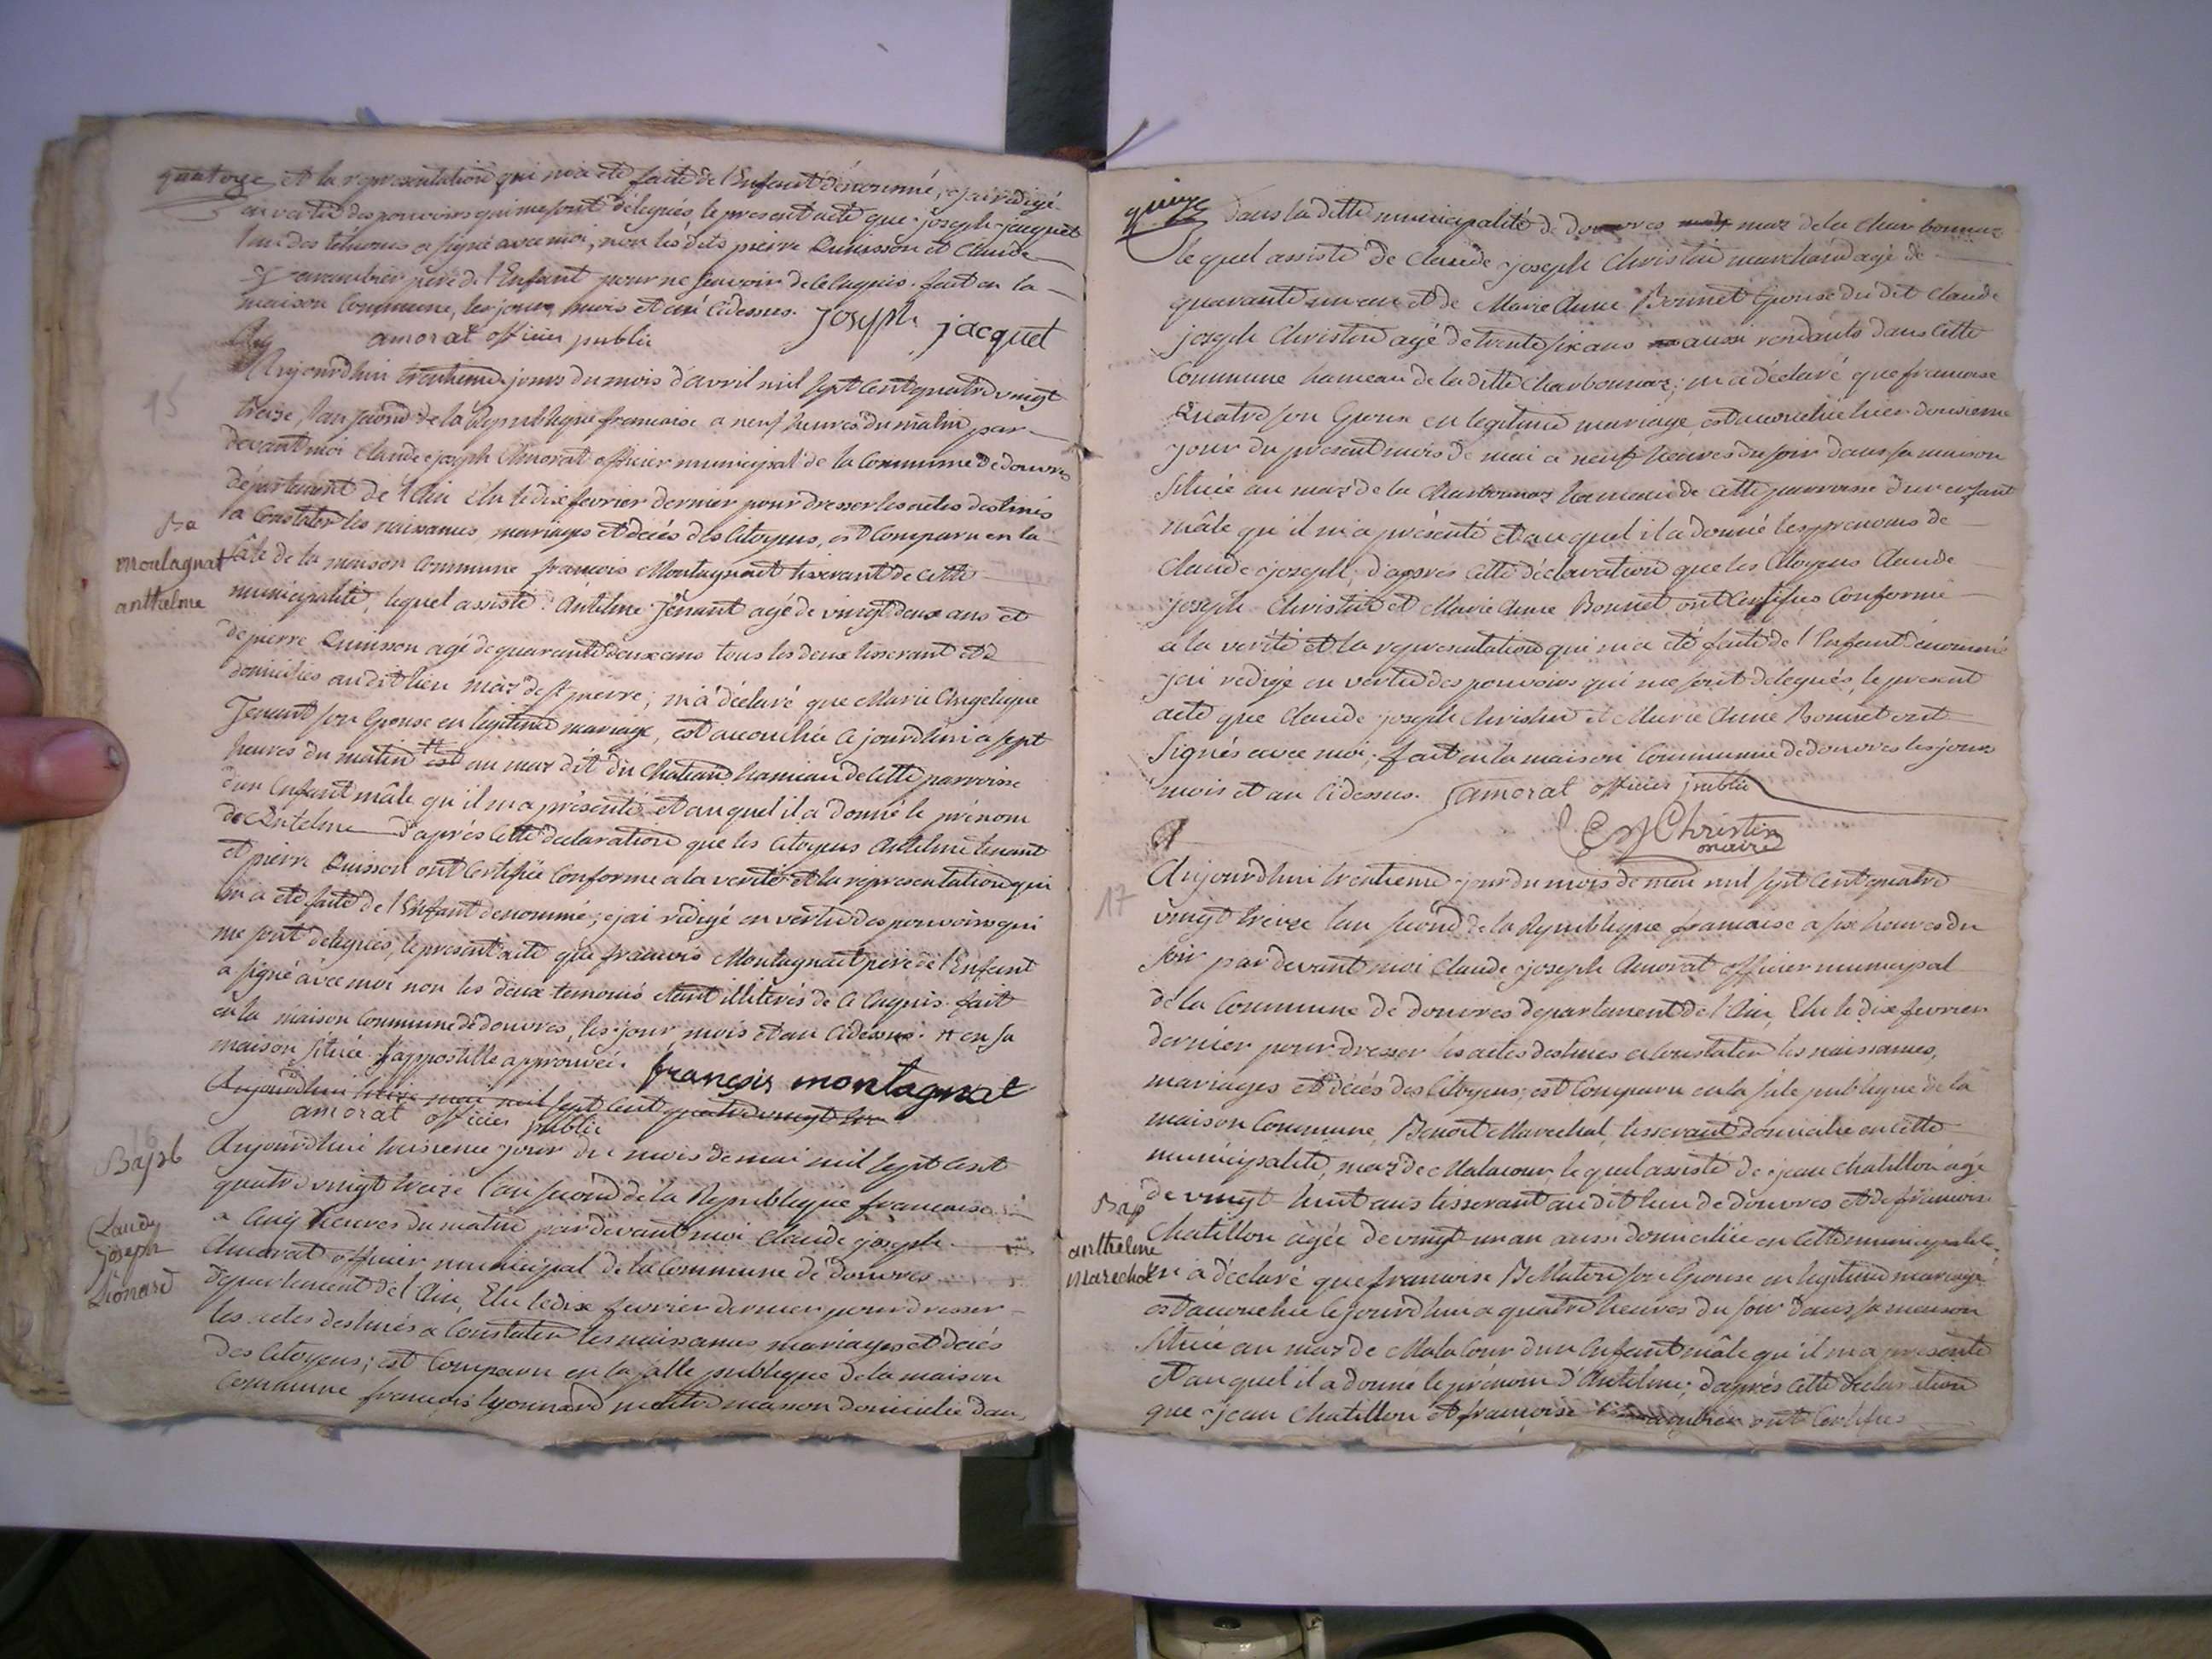 quatorze et la representation qui m'a été faite de l'Enfant dénommé, j'ai rédigé
en vertu des pouvoirs qui me sont délegués, le present acte que joseph jacquet
l'un des témoins a signé avec moi, non les dits pierre Quinsson et Claude
père de l'Enfant pour ne savoir de ce enquis. fait en la
maison Commune, les jour, mois et an cidessus. joseph jacquet
amorat officier public
15
Aujourdhui trentieme jour du mois d'avril mil sept cent quatre vingt
treize, l'an second de la Republique francaise a neuf heures du matin par
devant moi Claude joseph Amorat officier municipal de la Commune de douvres
département de l'Ain Elu le dix fevrier dernier pour dresser les actes destinés
a Constater les naissances mariages et décés des Citoyens, est Comparu en la
Ba
montagnat
anthelme
sale de la maison Commune francois Montagnat tisserant de cette
municipalité, lequel assisté d'Antelme Tenant agé de vingt deux ans et
de pierre Quinsson agé de quarante deux ans tous les deux tisserant et
domiciliés au dit lieu maz de st pierre; m'a déclaré que Marie Angelique
Tenant son Epouse en legitime mariage, est accouchée ce jourdhui a sept
heures du matin # est au maz dit du Chateau hameau de cette parroisse
d'un Enfant mâle qu'il m'a présenté et auquel il a donné le prénom
de Antelme d'après cette declaration que les Citoyens Antelme tenant
et pierre Quisson ont Certifiée Conforme a la verité et la representation qui
m'a été faite de l'Enfant denommé; j'ai rédigé en vertu des pouvoirs qui
me sont delegués, le present acte que francois Montagnat père de l'Enfant
a signé avec moi non les deux temoins etant illiterés de ce enquis. fait
en la maison Commune de douvres, les jour, mois et an cidessus. # en sa
maison située l'appostille approuvée. françois montagnat
Aujourdhui treize mai mil sept cent quatre vingt tr
amorat officier public
16
Bapt
Claude
joseph
Lionard
Aujourdhui troisieme jour du mois de mai mil sept cent
quatre vingt treize l'an second de la Republique francaise
a cinq heures du matin par devant moi Claude joseph
Amorat officier municipal de la Commune de douvres
département de l'Ain, Elu le dix fevrier dernier pour dresser
les actes destinés a Constater les naissances mariages et décés
des Citoyens; est Comparu en la salle publique de la maison
Commune francois lyonnard maitre masson domicilié dan
quinze dans la ditte municipalité de douvres maz de la Charbonnaz
lequel assisté de Claude joseph Christin marchand agé de
quarante un an et de Marie Anne Bonnet Epouse du dit Claude
joseph Christin agé de trente six ans aussi residants dans cette
Commune hameau de la ditte Charbonnaz; m'a déclaré que francoise
Quatre son Epouse en legitime mariage, est accouchée hier deuxieme
jour du present mois de mai a neuf heures du soir dans sa maison
située au maz de la Charbonnaz hameau de cette parroisse d'un enfant
mâle qu'il m'a présenté et auquel il a donné les prenoms de
Claude joseph; d'après cette déclaration que les Citoyens Claude
joseph Christin et Marie Anne Bonnet ont Certifiés Conforme
a la verité et la representation qui m'a été faite de l'Enfant denommé
j'ai redigé en vertu des pouvoirs qui me sont délegués, le present
acte que Claude joseph Christin et Marie Anne Bonnet ont
signés avec moi; fait en la maison Commune de douvres les jour
mois et an cidessus. amorat officier public
C J Christin
maire
17
Aujourdhui trentieme jour du mois de mai mil sept cent quatre
vingt treize l'an second de la Republique francaise a six heures du
soir par devant moi Claude joseph Amorat officier municipal
de la Commune de douvres departement de l'Ain, Elu le dix fevrier
dernier pour dresser les actes destinés a Constater les naissances,
mariages et décés des Citoyens; est Comparu en la sale publique de la
maison Commune, Benoit Marechal, tisserant domicilié en cette
municipalité, maz de Malacour, lequel assisté de jean Chatillon agé
Bap
anthelme
marechal
de vingt huit ans tisserant au dit lieu de douvres et de francoise
Chatillon agée de vingt un an aussi domiciliée en cette municipalité.
m'a declaré que francoise Bellaton son Epouse en legitime mariage
est accouchée ce jourdhui a quatre heures du soir dans sa maison
située au maz de Malacour d'un Enfant mâle qu'il m'a presenté
et auquel il a donné le prénom d'Antelme; d'après cette declaration
que jean Chatillon et francoise ont Certifiés